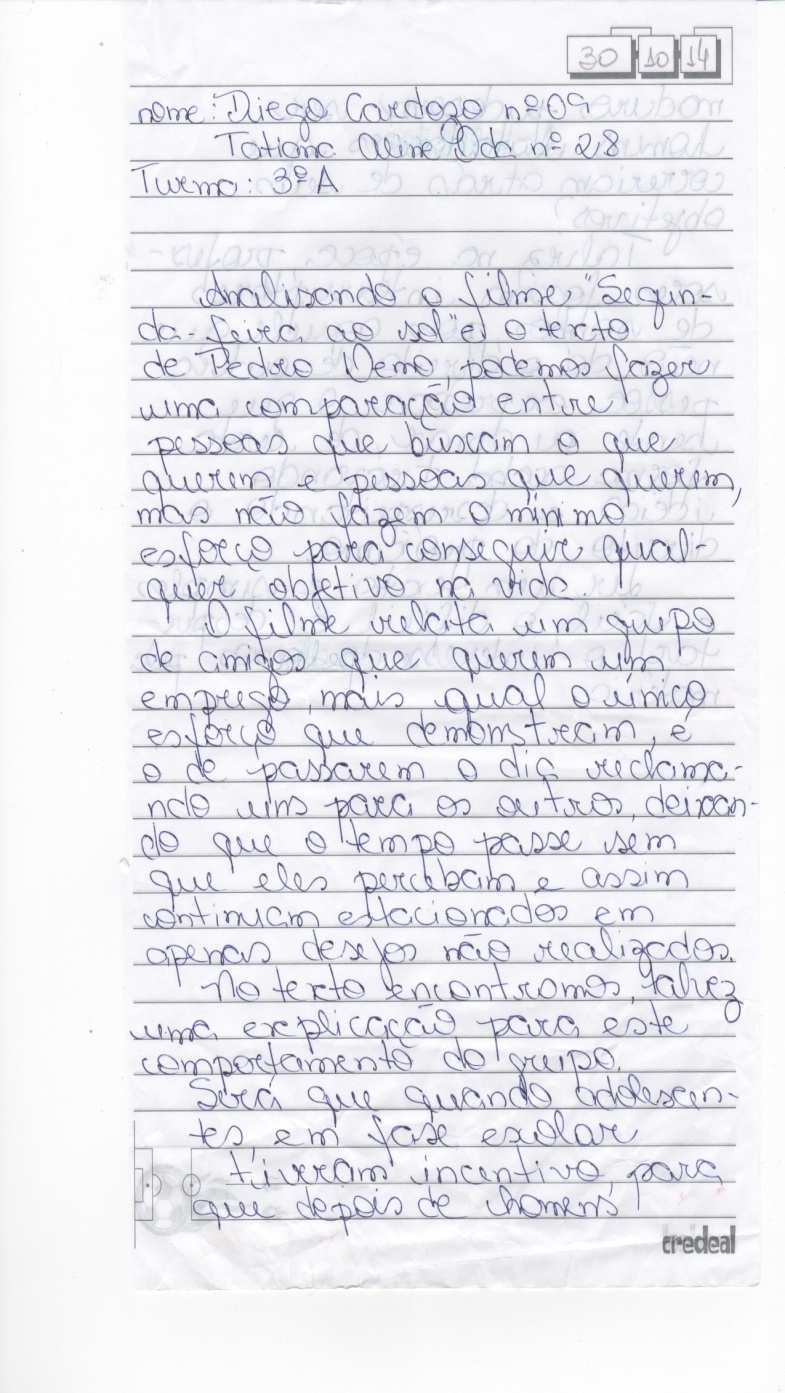 30 10 14
nome: Diego Cardozo nº 09
Tatiana Aline Oda nº 28
Turma: 3º A
Analisando o filme "Segun-
da-feira ao sol" e o texto
de Pedro Demo, podemos fazer
uma comparação entre
pessoas que buscam o que
querem e pessoas que querem,
mas não fazem o mínimo
esforço para conseguir qual-
quer objetivo na vida.
O filme relata um grupo
de amigos que querem um
emprego, mais qual o único
esforço que demonstram, é
o de passarem o dia reclama-
ndo uns para os outros, deixan-
do que o tempo passe sem
que eles percebam e assim
continuam estacionados em
apenas desejos não realizados.
No texto encontramos, talvez
uma explicação para este
comportamento do grupo.
Será que quando adolescen-
tes em fase escolar
tiveram incentivo, para
que depois de homens
credeal